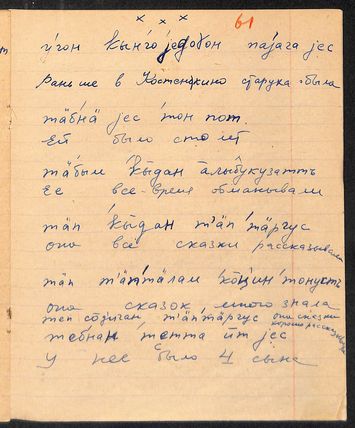 × × ×
61
у́гон кынго једо̄гон паја́га јес
Раньше в Костенкино старуха была
тӓбнӓ јес тон пот
Ей было сто лет
тӓбым кыдан алыбукузатть
Ее все время обманывали
тӓп кыдан т'ӓп'тӓргус
она все сказки рассказывала
тӓп т'ӓптӓлам коцин тонусть
она сказок много знала
теп т'ӓп'тӓргус она сказки хорошо рассказывала
тебнан тетта ӣт јес
У нее было 4 сына